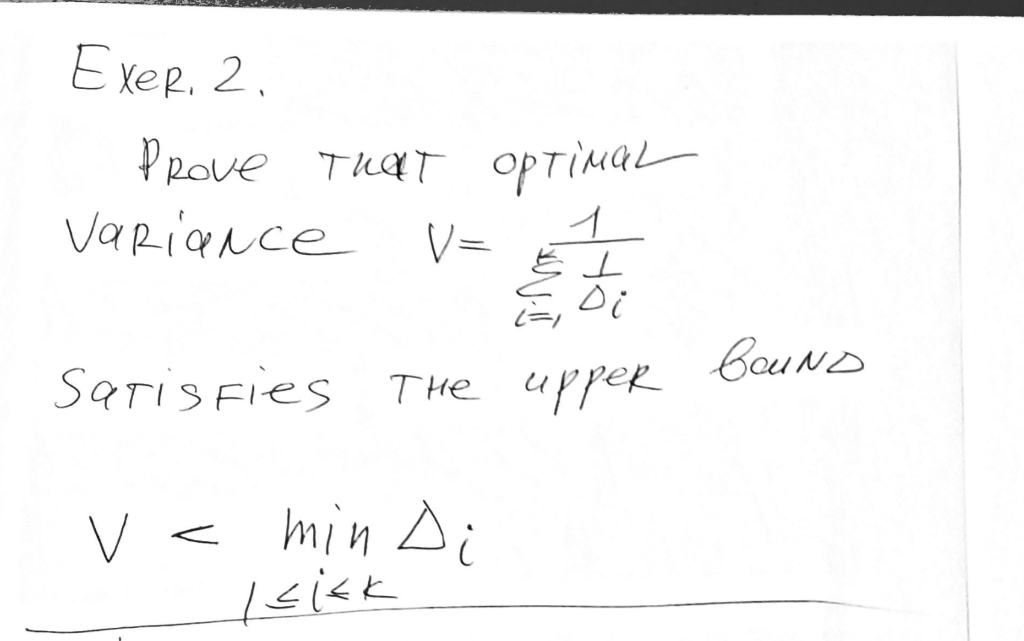 Exer. 2.
Prove that optimal
variance V = 1 / Σ_{i=1}^{k} 1/Δi
satisfies the upper bound
V < min Δi
1≤i≤k